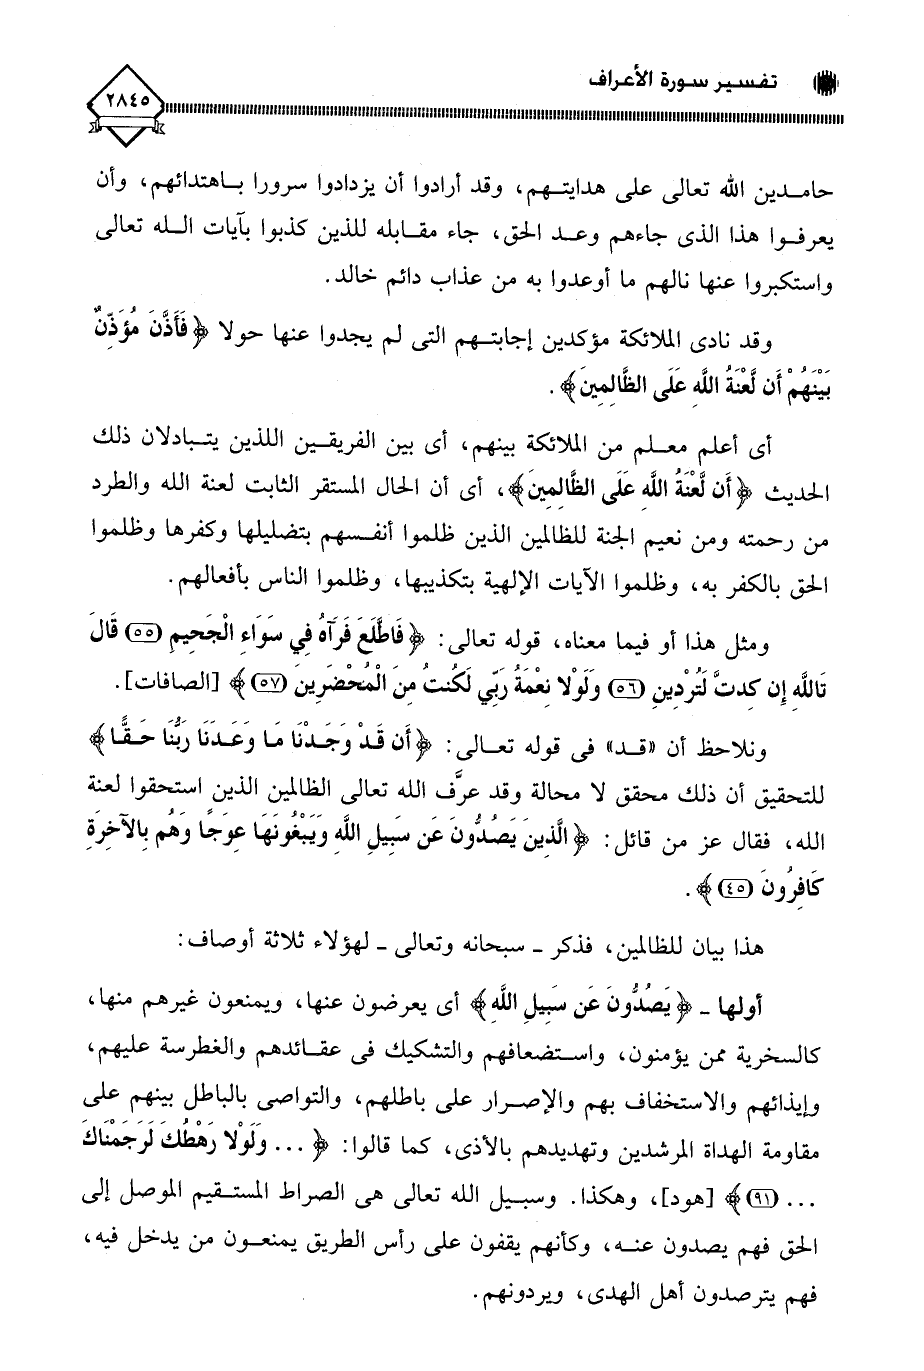 تفسير سورة الأعراف
٢٨٤٥
حامدين الله تعالى على هدايتهم، وقد أرادوا أن يزدادوا سرورا باهتدائهم، وأن
يعرفوا هذا الذى جاءهم وعد الحق، جاء مقابله للذين كذبوا بآيات الله تعالى
واستكبروا عنها نالهم ما أوعدوا به من عذاب دائم خالد.
وقد نادى الملائكة مؤكدين إجابتهم التى لم يجدوا عنها حولا ﴿فَأَذَّنَ مُؤَذِّنٌ
بَيْنَهُمْ أَن لَّعْنَةُ اللَّهِ عَلَى الظَّالِمِينَ﴾.
أى أعلم معلم من الملائكة بينهم، أى بين الفريقين اللذين يتبادلان ذلك
الحديث ﴿أَن لَّعْنَةُ اللَّهِ عَلَى الظَّالِمِينَ﴾، أى أن الحال المستقر الثابت لعنة الله والطرد
من رحمته ومن نعيم الجنة للظالمين الذين ظلموا أنفسهم بتضليلها وكفرها وظلموا
الحق بالكفر به، وظلموا الآيات الإلهية بتكذيبها، وظلموا الناس بأفعالهم.
ومثل هذا أو فيما معناه، قوله تعالى: ﴿فَاطَّلَعَ فَرَآهُ فِي سَوَاءِ الْجَحِيمِ (٥٥) قَالَ
تَاللَّهِ إِن كِدتَّ لَتُرْدِينِ (٥٦) وَلَوْلا نِعْمَةُ رَبِّي لَكُنتُ مِنَ الْمُحْضَرِينَ (٥٧)﴾ [الصافات].
ونلاحظ أن «قد» فى قوله تعالى: ﴿أَن قَدْ وَجَدْنَا مَا وَعَدَنَا رَبُّنَا حَقًّا﴾
للتحقيق أن ذلك محقق لا محالة وقد عرَّف الله تعالى الظالمين الذين استحقوا لعنة
الله، فقال عز من قائل: ﴿الَّذِينَ يَصُدُّونَ عَن سَبِيلِ اللَّهِ وَيَبْغُونَهَا عِوَجًا وَهُم بِالآخِرَةِ
كَافِرُونَ (٤٥)﴾.
هذا بيان للظالمين، فذكر ـ سبحانه وتعالى ـ لهؤلاء ثلاثة أوصاف:
أولها ـ ﴿يَصُدُّونَ عَن سَبِيلِ اللَّهِ﴾ أى يعرضون عنها، ويمنعون غيرهم منها،
كالسخرية ممن يؤمنون، واستضعافهم والتشكيك فى عقائدهم والغطرسة عليهم،
وإيذائهم والاستخفاف بهم والإصرار على باطلهم، والتواصى بالباطل بينهم على
مقاومة الهداة المرشدين وتهديدهم بالأذى، كما قالوا: ﴿... وَلَوْلا رَهْطُكَ لَرَجَمْنَاكَ
... (٩١)﴾ [هود]، وهكذا. وسبيل الله تعالى هى الصراط المستقيم الموصل إلى
الحق فهم يصدون عنه، وكأنهم يقفون على رأس الطريق يمنعون من يدخل فيه،
فهم يترصدون أهل الهدى، ويردونهم.